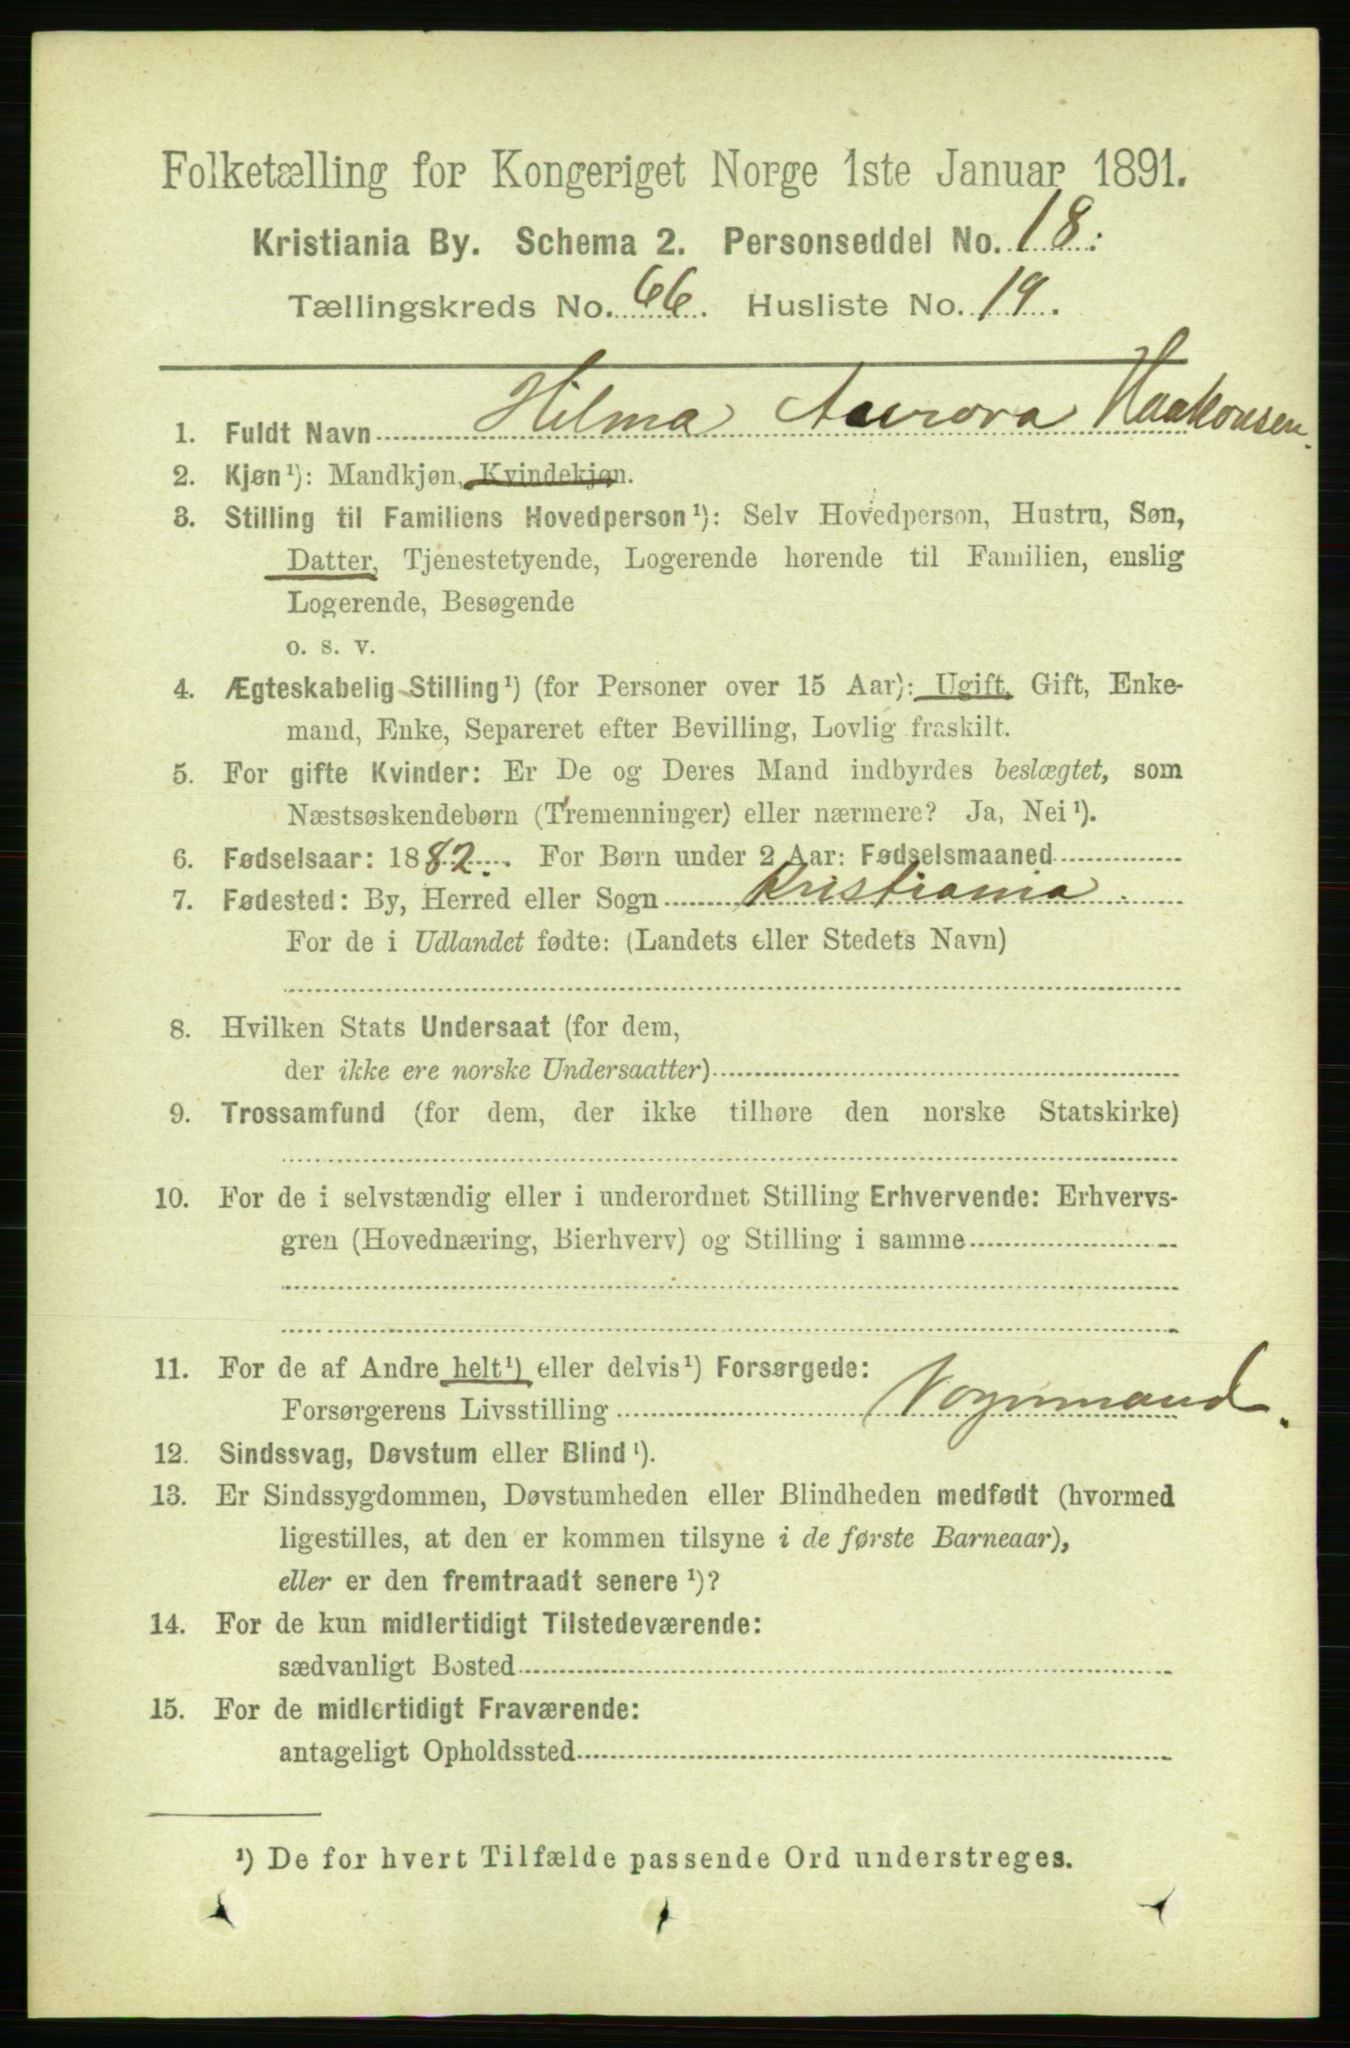 Folketælling for Kongeriget Norge 1ste Januar 1891.
Kristiania By. Schema 2. Personseddel No. 18.
Tællingskreds No. 66. Husliste No. 19.
1. Fuldt Navn Hilma Aurora Haakonsen.
2. Kjøn¹): Mandkjøn, Kvindekjøn.
3. Stilling til Familiens Hovedperson¹): Selv Hovedperson, Hustru, Søn,
Datter, Tjenestetyende, Logerende hørende til Familien, enslig
Logerende, Besøgende
o. s. v.
4. Ægteskabelig Stilling¹) (for Personer over 15 Aar): Ugift, Gift, Enke-
mand, Enke, Separeret efter Bevilling, Lovlig fraskilt.
5. For gifte Kvinder: Er De og Deres Mand indbyrdes beslægtet, som
Næstsøskendebørn (Tremenninger) eller nærmere? Ja, Nei¹).
6. Fødselsaar: 1882. For Børn under 2 Aar: Fødselsmaaned
7. Fødested: By, Herred eller Sogn Kristiania.
For de i Udlandet fødte: (Landets eller Stedets Navn)
8. Hvilken Stats Undersaat (for dem,
der ikke ere norske Undersaatter)
9. Trossamfund (for dem, der ikke tilhøre den norske Statskirke)
10. For de i selvstændig eller i underordnet Stilling Erhvervende: Erhvervs-
gren (Hovednæring, Bierhverv) og Stilling i samme
11. For de af Andre helt¹) eller delvis¹) Forsørgede:
Forsørgerens Livsstilling Vognmand.
12. Sindssvag, Døvstum eller Blind¹).
13. Er Sindssygdommen, Døvstumheden eller Blindheden medfødt (hvormed
ligestilles, at den er kommen tilsyne i de første Barneaar),
eller er den fremtraadt senere¹)?
14. For de kun midlertidigt Tilstedeværende:
sædvanligt Bosted
15. For de midlertidigt Fraværende:
antageligt Opholdssted
¹) De for hvert Tilfælde passende Ord understreges.